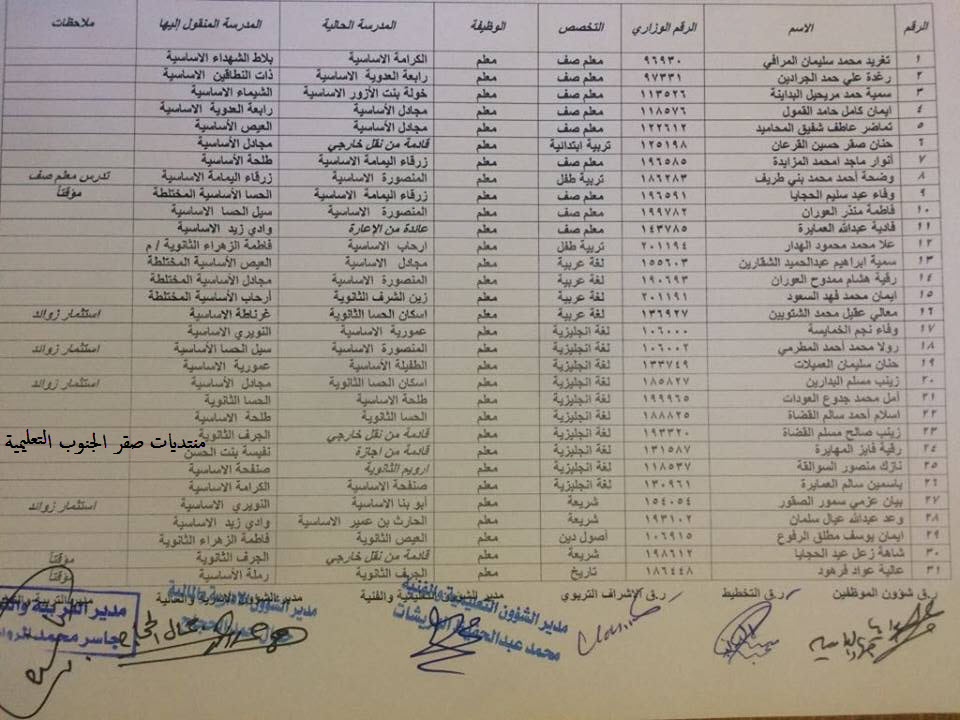 الرقم الاسم الرقم الوزاري التخصص الوظيفة المدرسة الحالية المدرسة المنقول إليها ملاحظات
١ تغريد محمد سليمان المرافي ٩٦٩٣٠ معلم صف معلم الكرامة الاساسية بلاط الشهداء الاساسية
٢ رغدة علي حمد الجرادين ٩٧٣٣١ معلم صف معلم رابعة العدوية الاساسية ذات النطاقين الاساسية
٣ سمية حمد مريحيل البداينة ١١٣٥٢٦ معلم صف معلم خولة بنت الأزور الاساسية الشيماء الاساسية
٤ ايمان كامل حامد القمول ١١٨٥٧٦ معلم صف معلم مجادل الأساسية رابعة العدوية الاساسية
٥ تماضر عاطف شفيق المحاميد ١٢٢٦١٢ معلم صف معلم مجادل الأساسية العيص الأساسية
٦ حنان صقر حسين القرعان ١٢٥١٩٨ تربية ابتدائية معلم قادمة من نقل خارجي مجادل الأساسية
٧ أنوار ماجد امحمد المزايدة ١٩٦٥٨٥ معلم صف معلم زرقاء اليمامة الاساسية طلحة الأساسية
٨ وضحة أحمد محمد بني طريف ١٨٦٢٨٣ تربية طفل معلم المنصورة الاساسية زرقاء اليمامة الاساسية تدرس معلم صف
٩ وفاء عيد سليم الحجايا ١٩٦٥٩١ معلم صف معلم زرقاء اليمامة الاساسية الحسا الأساسية المختلطة مؤقتاً
١٠ فاطمة منذر العوران ١٩٩٧٨٢ معلم صف معلم المنصورة الاساسية سيل الحسا الاساسية
١١ فادية عبدالله العمايرة ١٤٣٧٨٥ معلم صف معلم عائدة من الإعارة وادي زيد الاساسية
١٢ علا محمد محمود الهدار ٢٠١١٩٤ تربية طفل معلم ارحاب الاساسية فاطمة الزهراء الثانوية / م
١٣ سمية ابراهيم عبدالحميد الشقارين ١٥٥٦٠٣ لغة عربية معلم مجادل الاساسية العيص الأساسية المختلطة
١٤ رقية هشام ممدوح العوران ١٩٠٦٩٣ لغة عربية معلم المنصورة الاساسية مجادل الأساسية المختلطة
١٥ ايمان محمد فهد السعود ٢٠١١٩١ لغة عربية معلم زين الشرف الثانوية أرحاب الأساسية المختلطة
١٦ معالي عقيل محمد الشتويين ١٣٦٩٢٧ لغة عربية معلم اسكان الحسا الثانوية غرناطة الاساسية استثمار زوائد
١٧ وفاء نجم الخمايسة ١٠٦٠٠٠ لغة انجليزية معلم عمورية الاساسية النويري الاساسية
١٨ رولا محمد أحمد المطرمي ١٠٦٠٠٢ لغة انجليزية معلم المنصورة الاساسية سيل الحسا الاساسية استثمار زوائد
١٩ حنان سليمان العميلات ١٣٣٧٤٩ لغة انجليزية معلم الطفيلة الأساسية عمورية الاساسية
٢٠ زينب مسلم البدارين ١٨٥٨٢٧ لغة انجليزية معلم اسكان الحسا الثانوية مجادل الأساسية استثمار زوائد
٢١ أمل محمد جدوع العودات ١٩٩٩٦٥ لغة انجليزية معلم طلحة الاساسية الحسا الثانوية
٢٢ اسلام أحمد سالم القضاة ١٨٨٨٢٥ لغة انجليزية معلم الحسا الثانوية طلحة الاساسية
٢٣ زينب صالح مسلم القضاة ١٩٣٣٢٠ لغة انجليزية معلم قادمة من نقل خارجي الجرف الثانوية
منتديات صقر الجنوب التعليمية
٢٤ رقية فايز المهايرة ١٣١٥٨٧ لغة انجليزية معلم قادمة من اجازة نفيسة بنت الحسن
٢٥ نازك منصور السوالقة ١١٨٥٣٧ لغة انجليزية معلم ارويم الثانوية صنفحة الاساسية
٢٦ ياسمين سالم العمايرة ١٣٠٩٦١ لغة انجليزية معلم صنفحة الاساسية الكرامة الاساسية
٢٧ بيان عزمي سمور الصقور ١٥٤٠٥٤ شريعة معلم أبو بنا الاساسية النويري الاساسية استثمار زوائد
٢٨ وعد عبدالله عيال سلمان ١٩٣١٠٢ شريعة معلم الحارث بن عمير الاساسية وادي زيد الاساسية
٢٩ ايمان يوسف مطلق الرفوع ١٠٦٩١٥ أصول دين معلم العيص الثانوية فاطمة الزهراء الثانوية
٣٠ شاهة زعل عيد الحجايا ١٩٨٦١٢ شريعة معلم قادمة من نقل خارجي الجرف الثانوية مؤقتاً
٣١ عالية عواد فرهود ١٨٦٤٤٨ تاريخ معلم الجرف الثانوية رملة الأساسية مؤقتاً
ر.ق شؤون الموظفين ر.ق التخطيط ر.ق الإشراف التربوي مدير الشؤون التعليمية والفنية مدير الشؤون الإدارية والمالية مدير التربية والتعليم
مدير الشؤون التعليمية والفنية
مدير الشؤون الادارية والمالية
مدير التربية